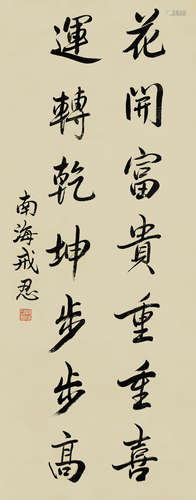 花開富貴重重喜
運轉乾坤步步高
南海戒忍